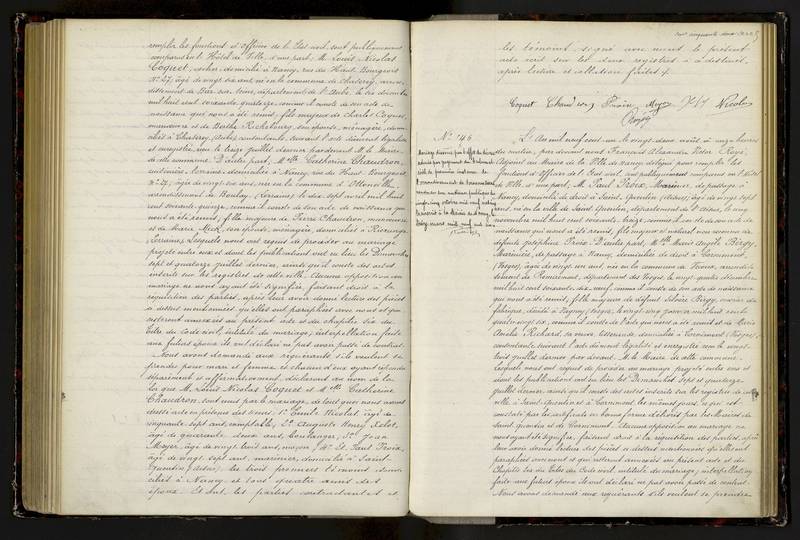 remplir les fonctions d'officier de l'Etat civil, sont publiquement
comparus en l'Hôtel de Ville, d'une part, M. Louis Nicolas
Coquet, cocher, domicilié à Nancy, rue du Haut Bourgeois
No 27, âgé de vingt six ans, né en la commune de Chaserey, arron-
dissement de Bar sur Seine, département de l'Aube, le six décembre
mil huit cent soixante quatorze, comme il conste de son acte de
naissance qui nous a été remis, fils majeur de Charles Coquet,
manœuvre et de Berthe Richebourg, son épouse, ménagère, domi-
ciliés à Chaserey, (Aube), consentants, suivant l'acte dûment légalisé
et enregistré, reçu le onze juillet dernier par devant M. le Maire
de cette commune. D'autre part, Mlle Catherine Chaudron,
cuisinière, lorraine, domiciliée à Nancy, rue du Haut Bourgeois
No 27, âgée de vingt six ans, née en la commune d'Ottonville,
arrondissement de Boulay, (Lorraine), le dix sept avril mil huit
cent soixante quinze, comme il conste de son acte de naissance qui
nous a été remis, fille majeure de Pierre Chaudron, manœuvre
et de Marie Meck, son épouse, ménagère, domiciliés à
Lorraine. Lesquels nous ont requis de procéder au mariage
projeté entre eux et dont les publications ont eu lieu les Dimanches
sept et quatorze juillet dernier, ainsi qu'il conste des actes
inscrits sur les registres de cette ville. Aucune opposition au
mariage ne nous ayant été signifiée, faisant droit à la
réquisition des parties, après leur avoir donné lecture des pièces
ci dessus mentionnées qu'elles ont paraphées avec nous et qui
resteront annexées au présent acte et du chapitre six du
titre du code civil, intitulé du mariage; interpellation faite
aux futurs époux ils ont déclaré ne pas avoir passé de contrat.
Nous avons demandé aux requérants s'ils veulent se
prendre pour mari et femme et chacun d'eux ayant répondu
séparément et affirmativement, déclarons au nom de la
loi que M. Louis Nicolas Coquet et Mlle Catherine
Chaudron, sont unis par le mariage, de tout quoi nous avons
dressé acte en présence des sieurs: 1° Emile Nicolas, âgé de
cinquante sept ans, comptable, 2° Auguste Henry
âgé de quarante deux ans, boulanger, 3° Jean
Mayer, âgé de vingt huit ans, maçon, 4° et Paul Froix,
âgé de vingt sept ans, marinier, domicilié à Saint
Quentin (Aisne), les trois premiers témoins domi-
ciliés à Nancy et tous quatre amis des
époux. Et ont les parties contractantes et
cinquante deux
les témoins, signé avec nous le présent
acte civil sur les deux registres à ce destinés,
après lecture et collation faites.
Coquet Chaudron Froix Mayer Nicolas
Royé
No 746
L'An mil neuf cent un le vingt deux août, à onze heures
du matin, par devant nous François Alexandre Victor Royé,
Adjoint au Maire de la Ville de Nancy délégué pour remplir les
fonctions d'officier de l'Etat civil, sont publiquement comparus en l'Hôtel
de Ville, d'une part, M. Paul Froix, Marinier, de passage à
Nancy, domicilié de droit à Saint Quentin (Aisne), âgé de vingt sept
ans, né en la ville de Saint Quentin, département de l'Aisne, le cinq
novembre mil huit cent soixante treize, comme il conste de son acte de
naissance qui nous a été remis, fils majeur et naturel non reconnu de
défunte Joséphine Froix. D'autre part, Mlle Marie Angèle Birgy,
Marinière, de passage à Nancy, domiciliée de droit à Cornimont,
(Vosges), âgée de vingt un ans, née en la commune de
arrondis-
sement de Remiremont, département des Vosges, le vingt quatre décembre
mil huit cent soixante dix neuf, comme il conste de son acte de naissance
qui nous a été remis, fille majeure de défunt
Birgy, ouvrier de
fabrique, décédé à
(Vosges), le vingt cinq janvier mil huit cent
quatre vingt six, comme il conste de l'acte qui nous a été remis et de Marie
Richard, sa veuve, tisserande, domiciliée à Cornimont (Vosges),
consentante, suivant l'acte dûment légalisé et enregistré reçu le vingt
huit juillet dernier par devant M. le Maire de cette commune.
Lesquels nous ont requis de procéder au mariage projeté entre eux et
dont les publications ont eu lieu les Dimanches sept et quatorze
juillet dernier, ainsi qu'il conste des actes inscrits sur les registres de cette
ville, à Saint Quentin et à Cornimont, les mêmes jours, ce qui est
constaté par les certificats en bonne forme délivrés par les Maires de
Saint Quentin et de Cornimont. Aucune opposition au mariage ne
nous ayant été signifiée, faisant droit à la réquisition des parties, après
leur avoir donné lecture des pièces ci dessus mentionnées qu'elles ont
paraphées avec nous et qui resteront annexées au présent acte et du
Chapitre six du titre du Code civil, intitulé du mariage; interpellation
faite aux futurs époux ils ont déclaré ne pas avoir passé de contrat.
Nous avons demandé aux requérants s'ils veulent se prendre